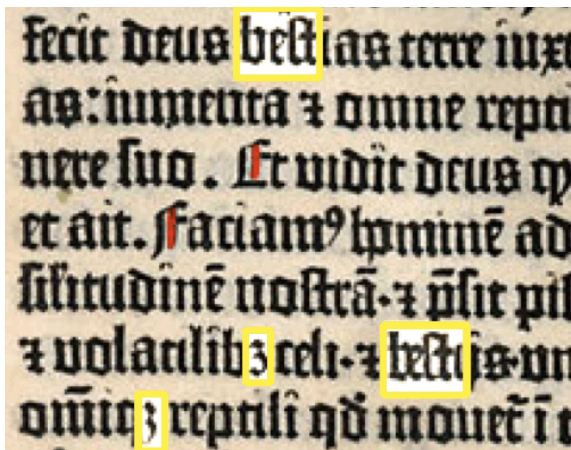 Fecit deus beſtias terre iuxt
as: iumenta ⁊ omne repti
nere ſuo. Et vidit deus
et ait. Faciamꝰ hominē ad
ſil̄itudinē noſtrā· ⁊ p̄ſit piſ
⁊ volatilibꝫ celi· ⁊ beſtijs· un
om̄iqꝫ reptili qd̄ mouet̄ ī t